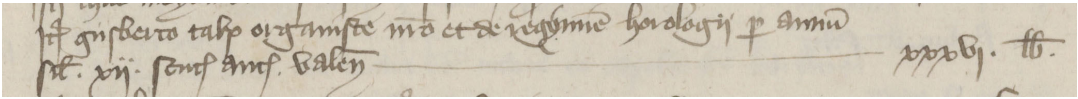 Itē gisberto talp organiste mō et de regymē horologij p annū
sct. xij. scut ant. valen xxxvj. lb.